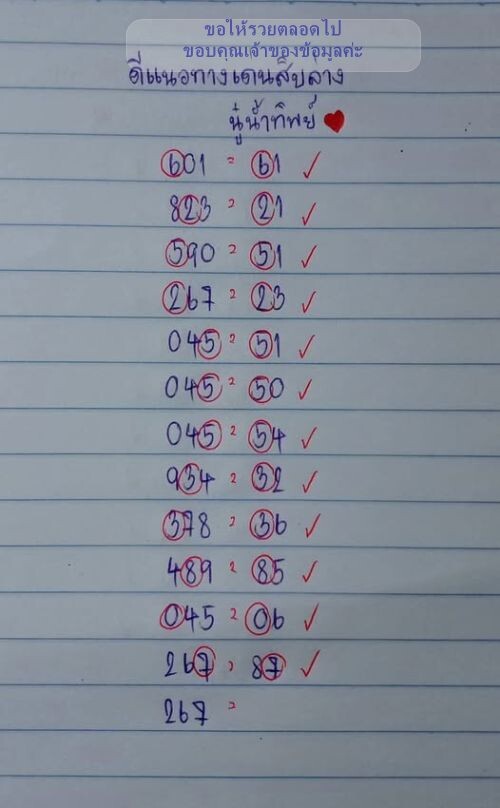 ขอให้รวยตลอดไป
ขอบคุณเจ้าของข้อมูลค่ะ
ดีแนวทางเดินสิบล่าง
นู๋น้ำทิพย์
601 = 61 ✓
823 = 21 ✓
590 = 51 ✓
267 = 23 ✓
045 = 51 ✓
045 = 50 ✓
045 = 54 ✓
934 = 32 ✓
378 = 36 ✓
489 = 85 ✓
045 = 06 ✓
267 = 87 ✓
267 =